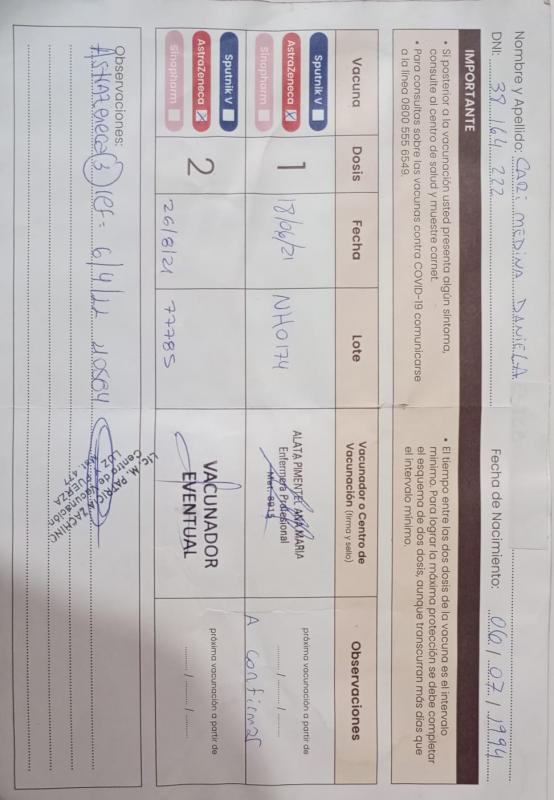 Nombre y Apellido: CARI MEDINA DANIELA
DNI: 39 164 222 Fecha de Nacimiento: 06 / 07 / 1994
IMPORTANTE
• Si posterior a la vacunación usted presenta algún síntoma,
consulte al centro de salud y muestre carnet.
• Para consultas sobre las vacunas contra COVID-19 comunicarse
a la línea 0800 555 6549.
• El tiempo entre las dos dosis de la vacuna es el intervalo
mínimo. Para lograr la máxima protección se debe completar
el esquema de dos dosis, aunque transcurran más días que
el intervalo mínimo.
Vacuna Dosis Fecha Lote Vacunador o Centro de Vacunación (firma y sello) Observaciones
Sputnik V
AstraZeneca X
Sinopharm
1
18/06/21
NH0174
ALATA PIMENTEL ANA MARIA
Enfermera Profesional
próxima vacunación a partir de
....... / ....... / .......
A confirmar
Sputnik V
AstraZeneca X
Sinopharm
2
26/8/21
77785
VACUNADOR
EVENTUAL
próxima vacunación a partir de
....... / ....... / .......
Observaciones:
AstraZeneca (3) ref= 6/4/22
LIC. M. PATRICIA
Centro de Vacunación
LUZ Y FUERZA